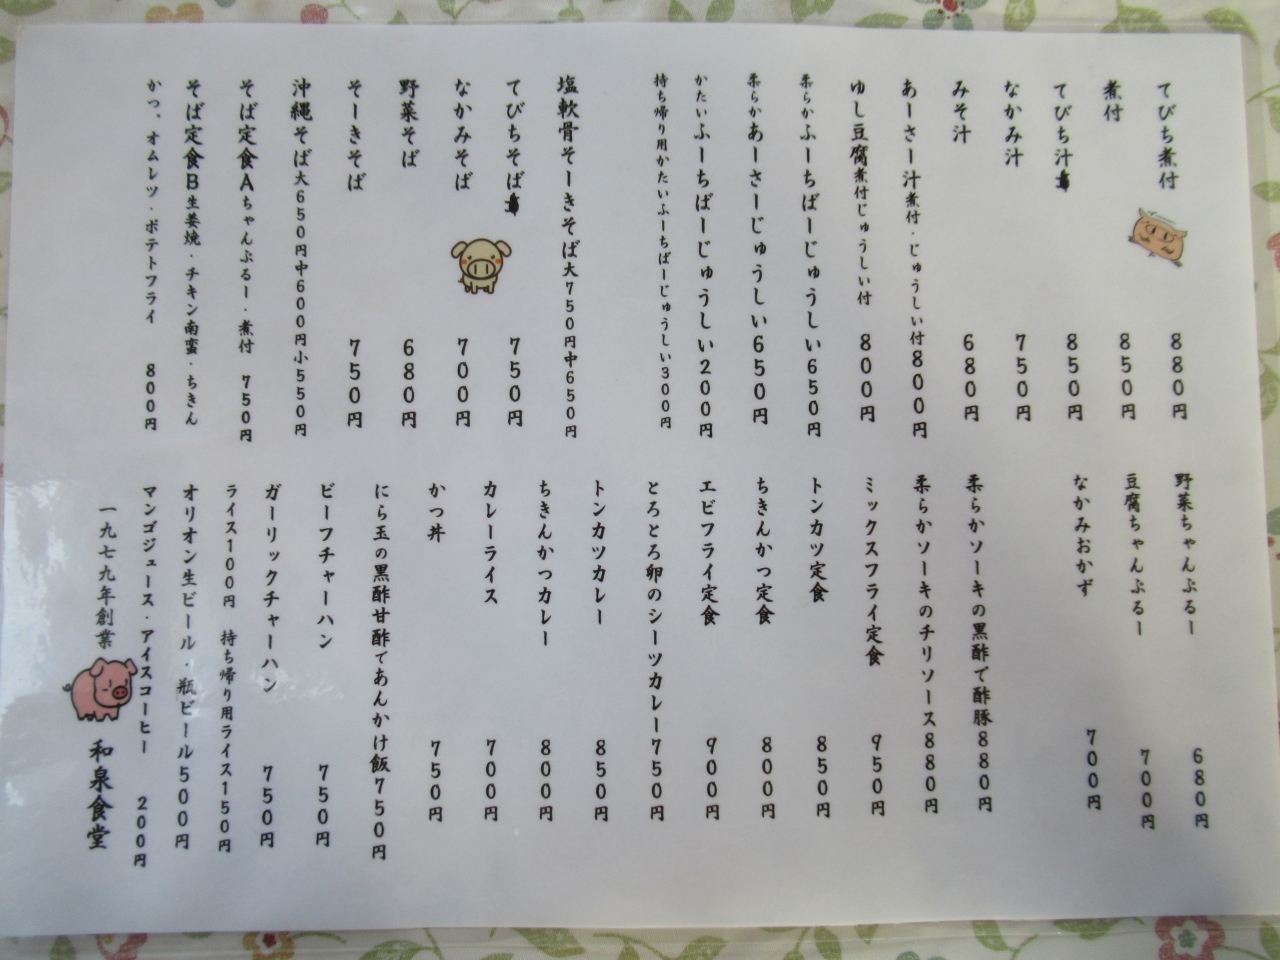 てびち煮付 880円
煮付 850円
てびち汁 850円
なかみ汁 750円
みそ汁 680円
あーさー汁煮付・じゅうしい付800円
ゆし豆腐煮付じゅうしい付 800円
柔らかふーちばーじゅうしい650円
柔らかあーさーじゅうしい650円
かたいふーちばーじゅうしい200円
持ち帰り用かたいふーちばーじゅうしい300円
塩軟骨そーきそば大750円中650円
てびちそば 750円
なかみそば 700円
野菜そば 680円
そーきそば 750円
沖縄そば大650円中600円小550円
そば定食Aちゃんぷるー・煮付 750円
そば定食B生姜焼・チキン南蛮・ちきん
かつ、オムレツ・ポテトフライ 800円
野菜ちゃんぷるー 680円
豆腐ちゃんぷるー 700円
なかみおかず 700円
柔らかソーキの黒酢で酢豚880円
柔らかソーキのチリソース880円
ミックスフライ定食 950円
トンカツ定食 850円
ちきんかつ定食 800円
エビフライ定食 900円
とろとろ卵のシーツカレー750円
トンカツカレー 850円
ちきんかつカレー 800円
カレーライス 700円
かつ丼 750円
にら玉の黒酢甘酢であんかけ飯750円
ビーフチャーハン 750円
ガーリックチャーハン 750円
ライス100円 持ち帰り用ライス150円
オリオン生ビール・瓶ビール500円
マンゴジュース・アイスコーヒー 200円
一九七九年創業 和泉食堂